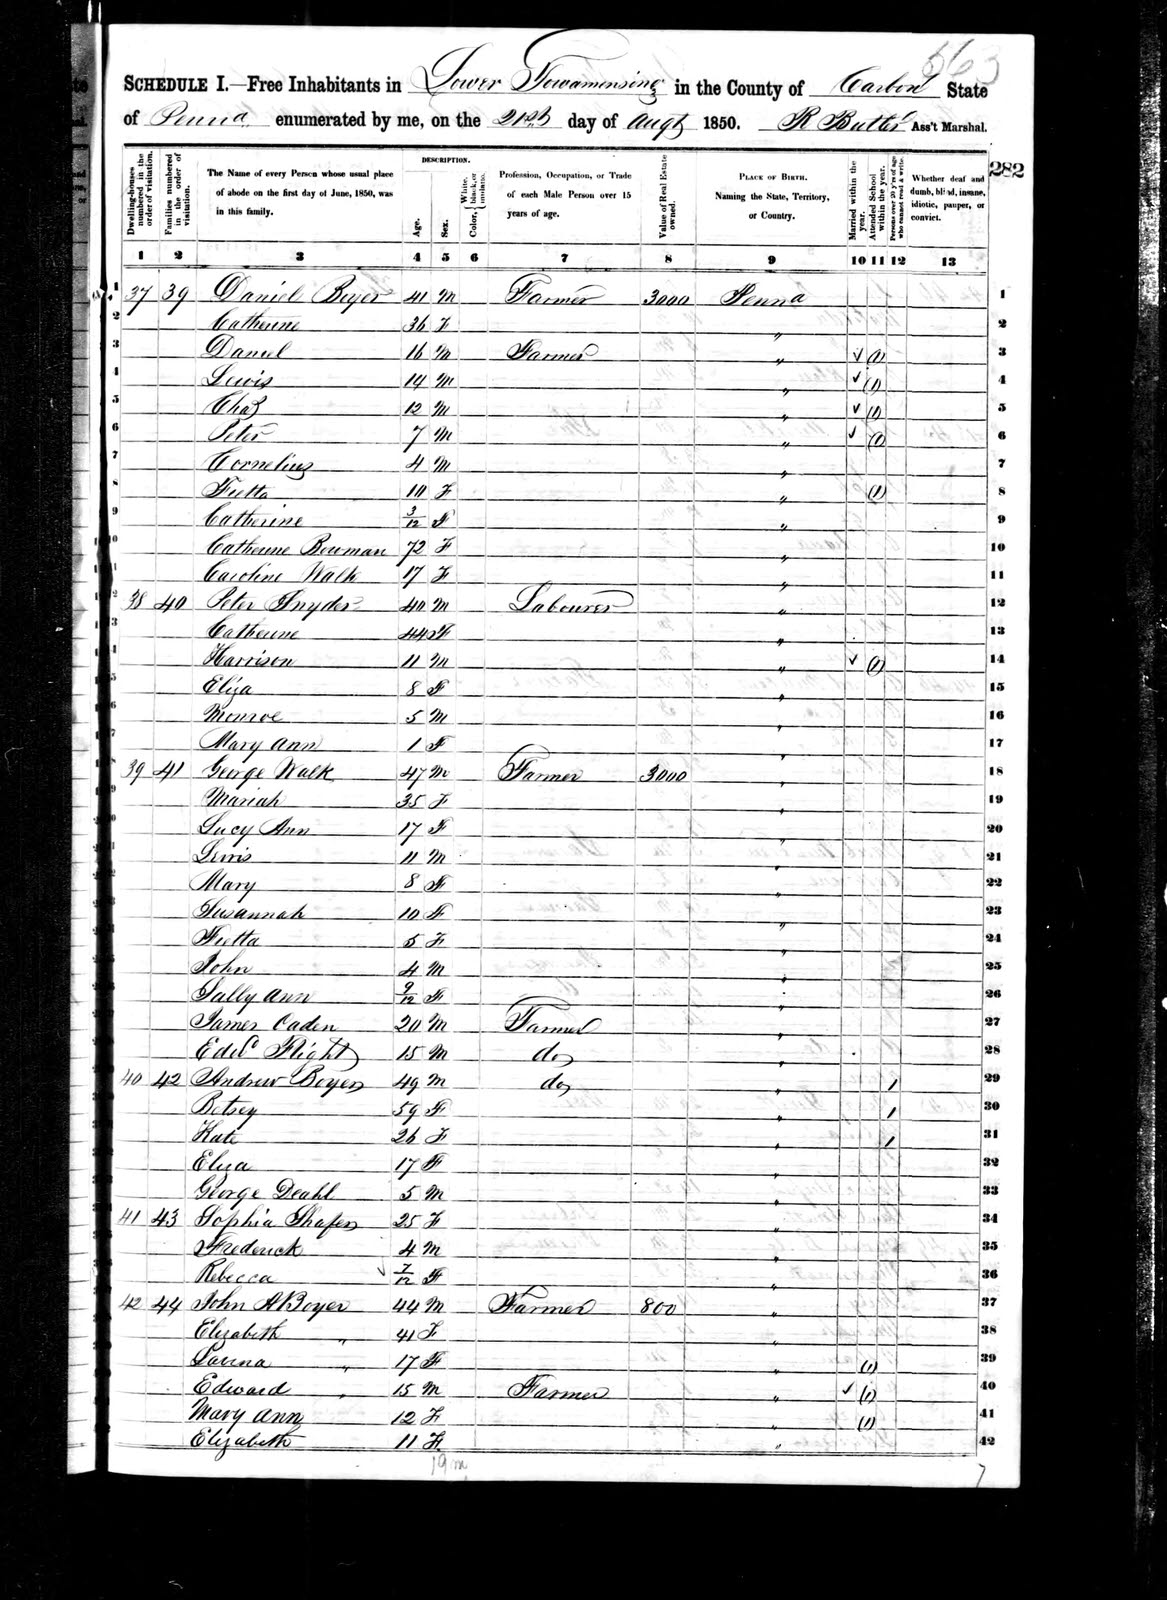 563
SCHEDULE I.—Free Inhabitants in Lower Towamensing in the County of Carbon State
of Penna enumerated by me, on the 21st day of Augt 1850. R Butler Ass't Marshal.
282
Dwelling-houses numbered in the order of visitation. Families numbered in the order of visitation. The Name of every Person whose usual place of abode on the first day of June, 1850, was in this family. DESCRIPTION. Age. Sex. Color, White, black, or mulatto. Profession, Occupation, or Trade of each Male Person over 15 years of age. Value of Real Estate owned. PLACE OF BIRTH. Naming the State, Territory, or Country. Married within the year. Attended School within the year. Persons over 20 y'rs of age who cannot read & write. Whether deaf and dumb, blind, insane, idiotic, pauper, or convict.
1 2 3 4 5 6 7 8 9 10 11 12 13
1 37 39 Daniel Boyer 41 M Farmer 3000 Penna 1
2 Catherine 36 F " 2
3 Daniel 16 M Farmer " ✓ (1) 3
4 Lewis 14 M " ✓ (1) 4
5 Chas 12 M " ✓ (1) 5
6 Peter 7 M " ✓ (1) 6
7 Cornelius 4 M " 7
8 10 F " (1) 8
9 Catherine 3/12 F " 9
10 Catherine Bowman 72 F " 10
11 Caroline Walk 17 F " 11
12 38 40 Peter Snyder 40 M Labourer " 12
13 Catherine 44 F " 13
14 Harrison 11 M " ✓ (1) 14
15 Eliza 8 F " 15
16 Monroe 5 M " 16
17 Mary Ann 1 F " 17
18 39 41 George Walk 47 M Farmer 3000 " 18
19 Mariah 35 F " 19
20 Lucy Ann 17 F " 20
21 Lewis 11 M " 21
22 Mary 8 F " 22
23 Susannah 10 F " 23
24 5 F " 24
25 John 4 M " 25
26 Sally Ann 9/12 F " 26
27 James Caden 20 M Farmer " 27
28 Edwd Flight 15 M do " 28
29 40 42 Andrew Boyer 49 M do " 1 29
30 Betsey 59 F " 1 30
31 Kate 26 F " 1 31
32 Eliza 17 F " 32
33 George Deahl 5 M " 33
34 41 43 Sophia Shafer 25 F " 34
35 Frederick 4 M " 35
36 Rebecca ✓ 7/12 F " 36
37 42 44 John A Boyer 44 M Farmer 800 " 37
38 Elizabeth " 41 F " 38
39 Lavina " 17 F " (1) 39
40 Edward " 15 M Farmer " ✓ (1) 40
41 Mary Ann 12 F " (1) 41
42 Elizabeth 11 F " 42
19 m
7